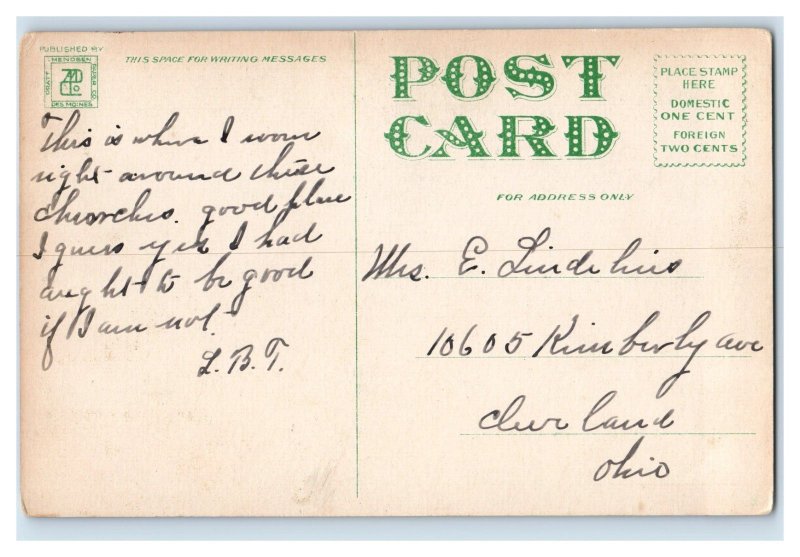 PUBLISHED BY
MENDSEN
DES MOINES
THIS SPACE FOR WRITING MESSAGES
This is where I room
right around these
churches. good place
I guess yes I had
aught to be good
if I am not.
L. B. T.
POST
CARD
PLACE STAMP
HERE
DOMESTIC
ONE CENT
FOREIGN
TWO CENTS
FOR ADDRESS ONLY
Mrs. E.
10605 Kimberly ave
Cleveland
Ohio